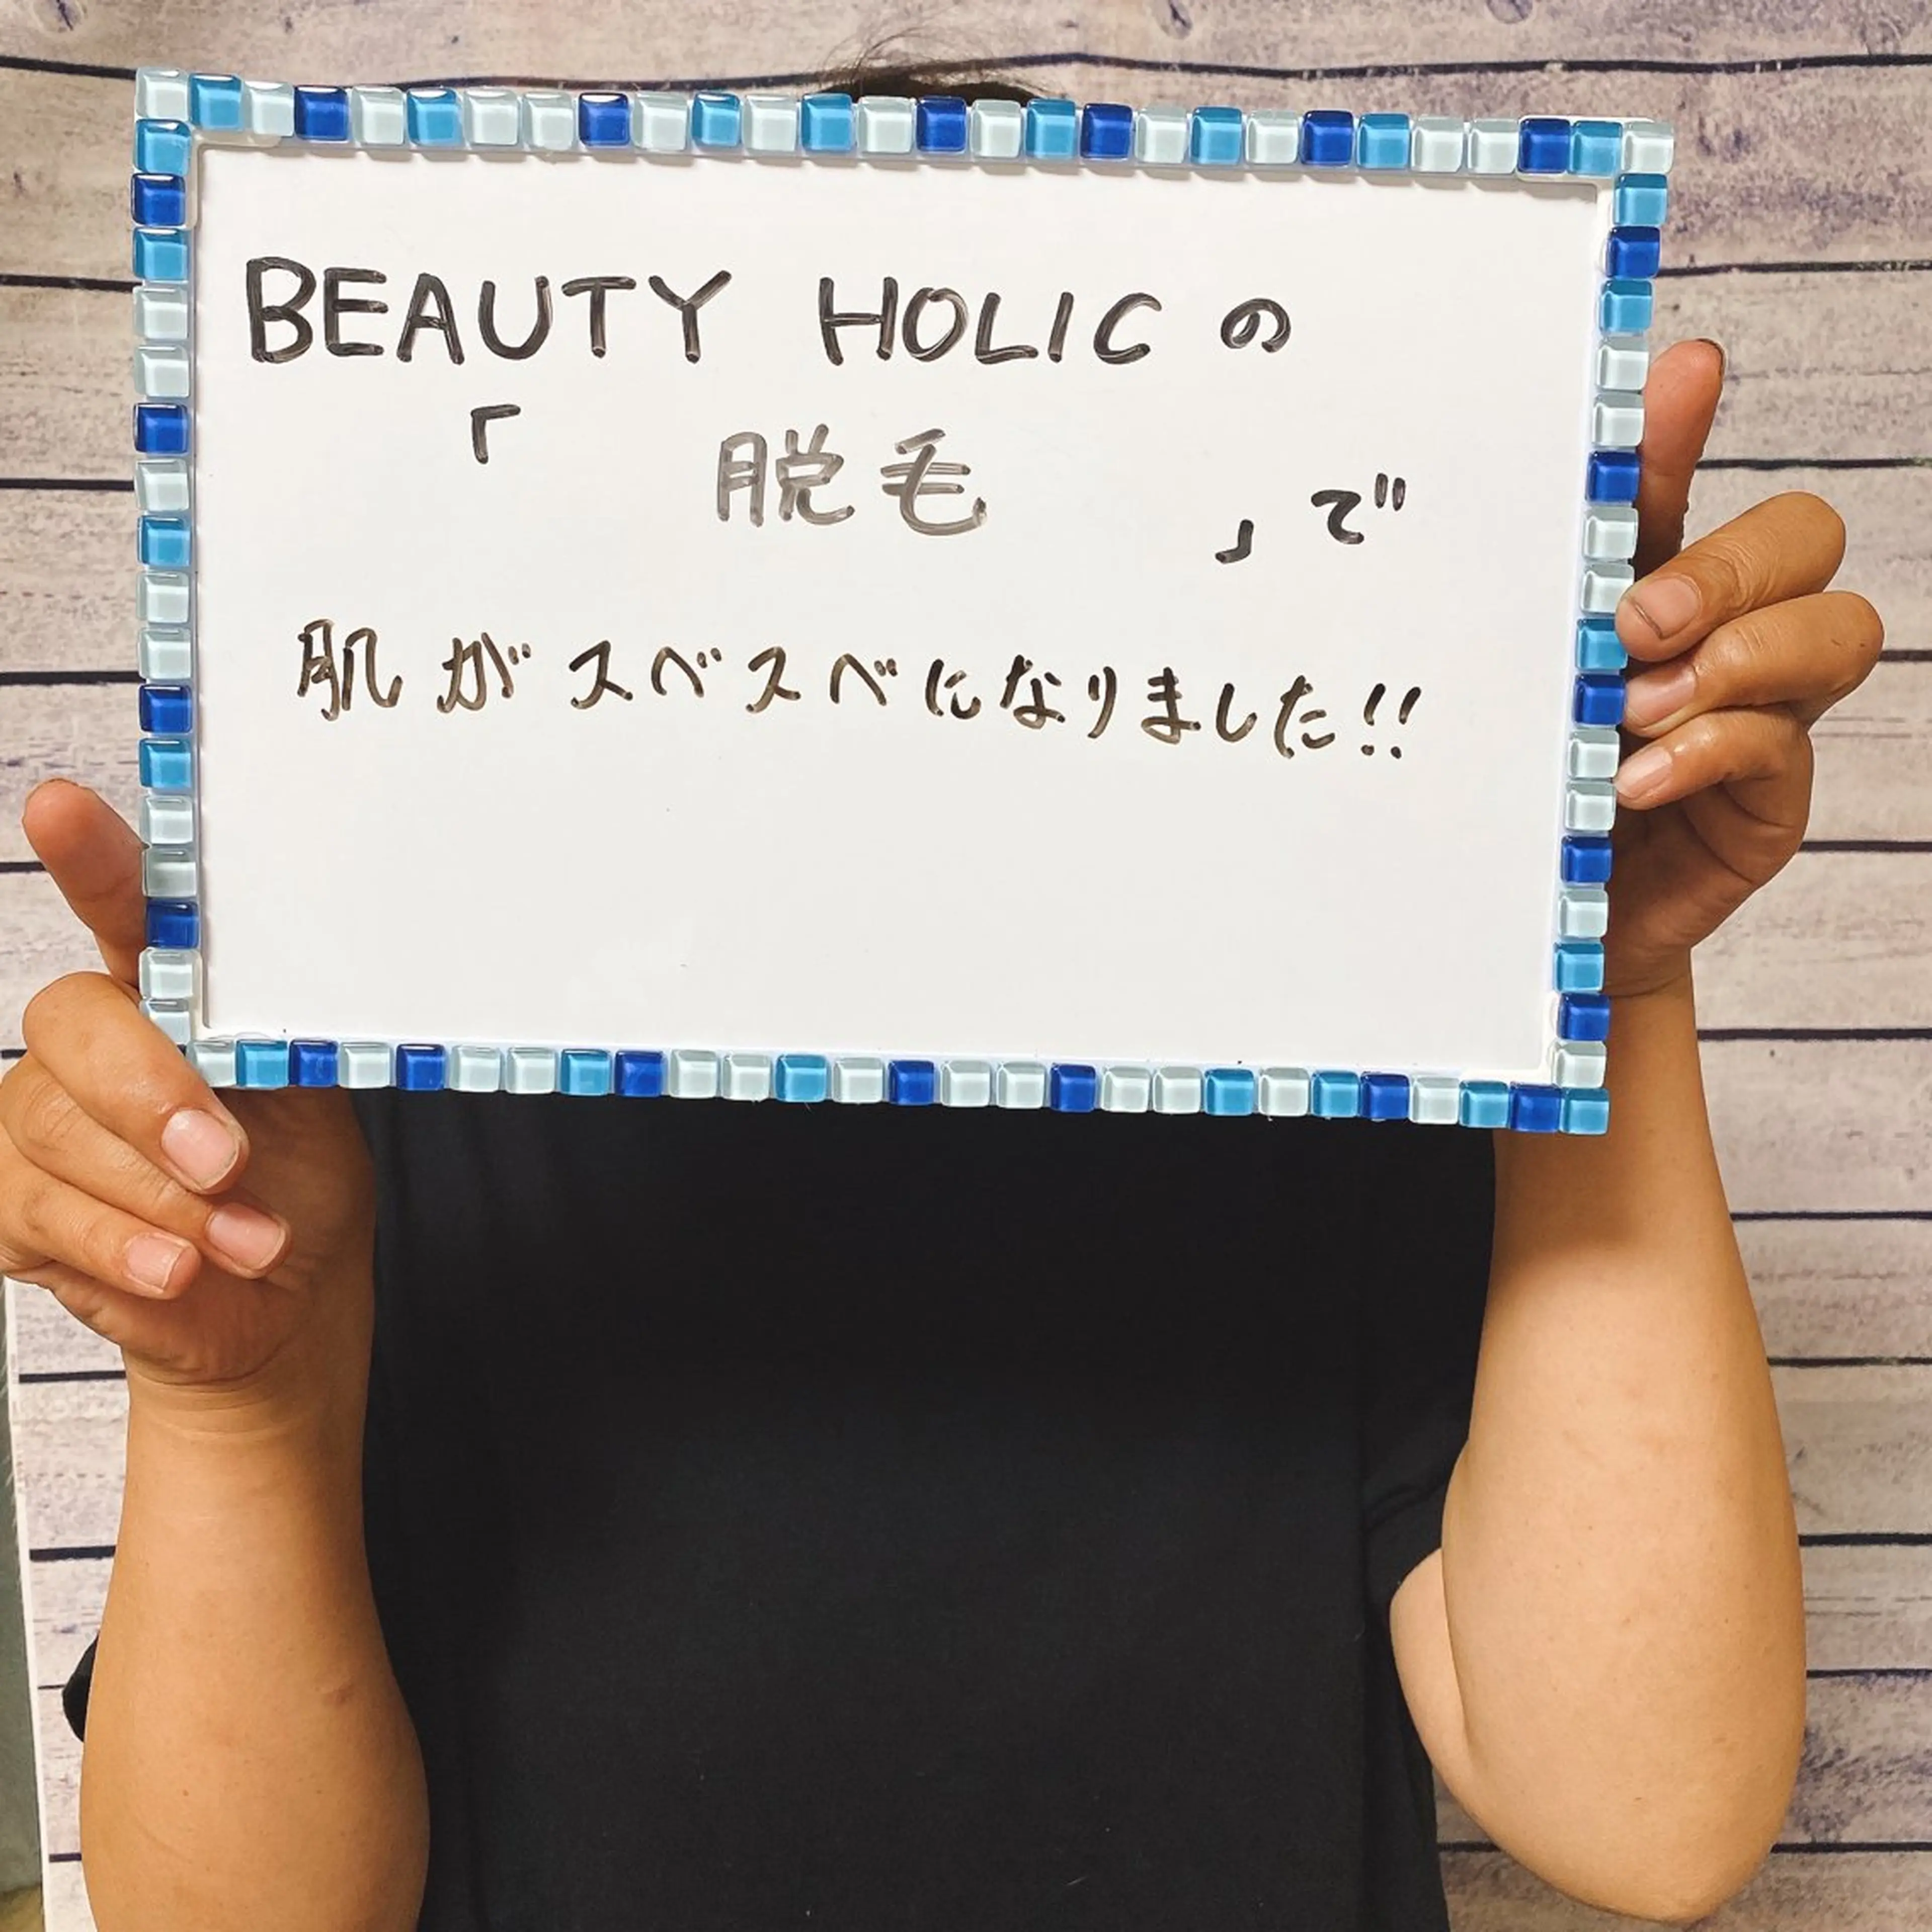 BEAUTY HOLICの
「 脱毛 」で
肌がスベスベになりました!!